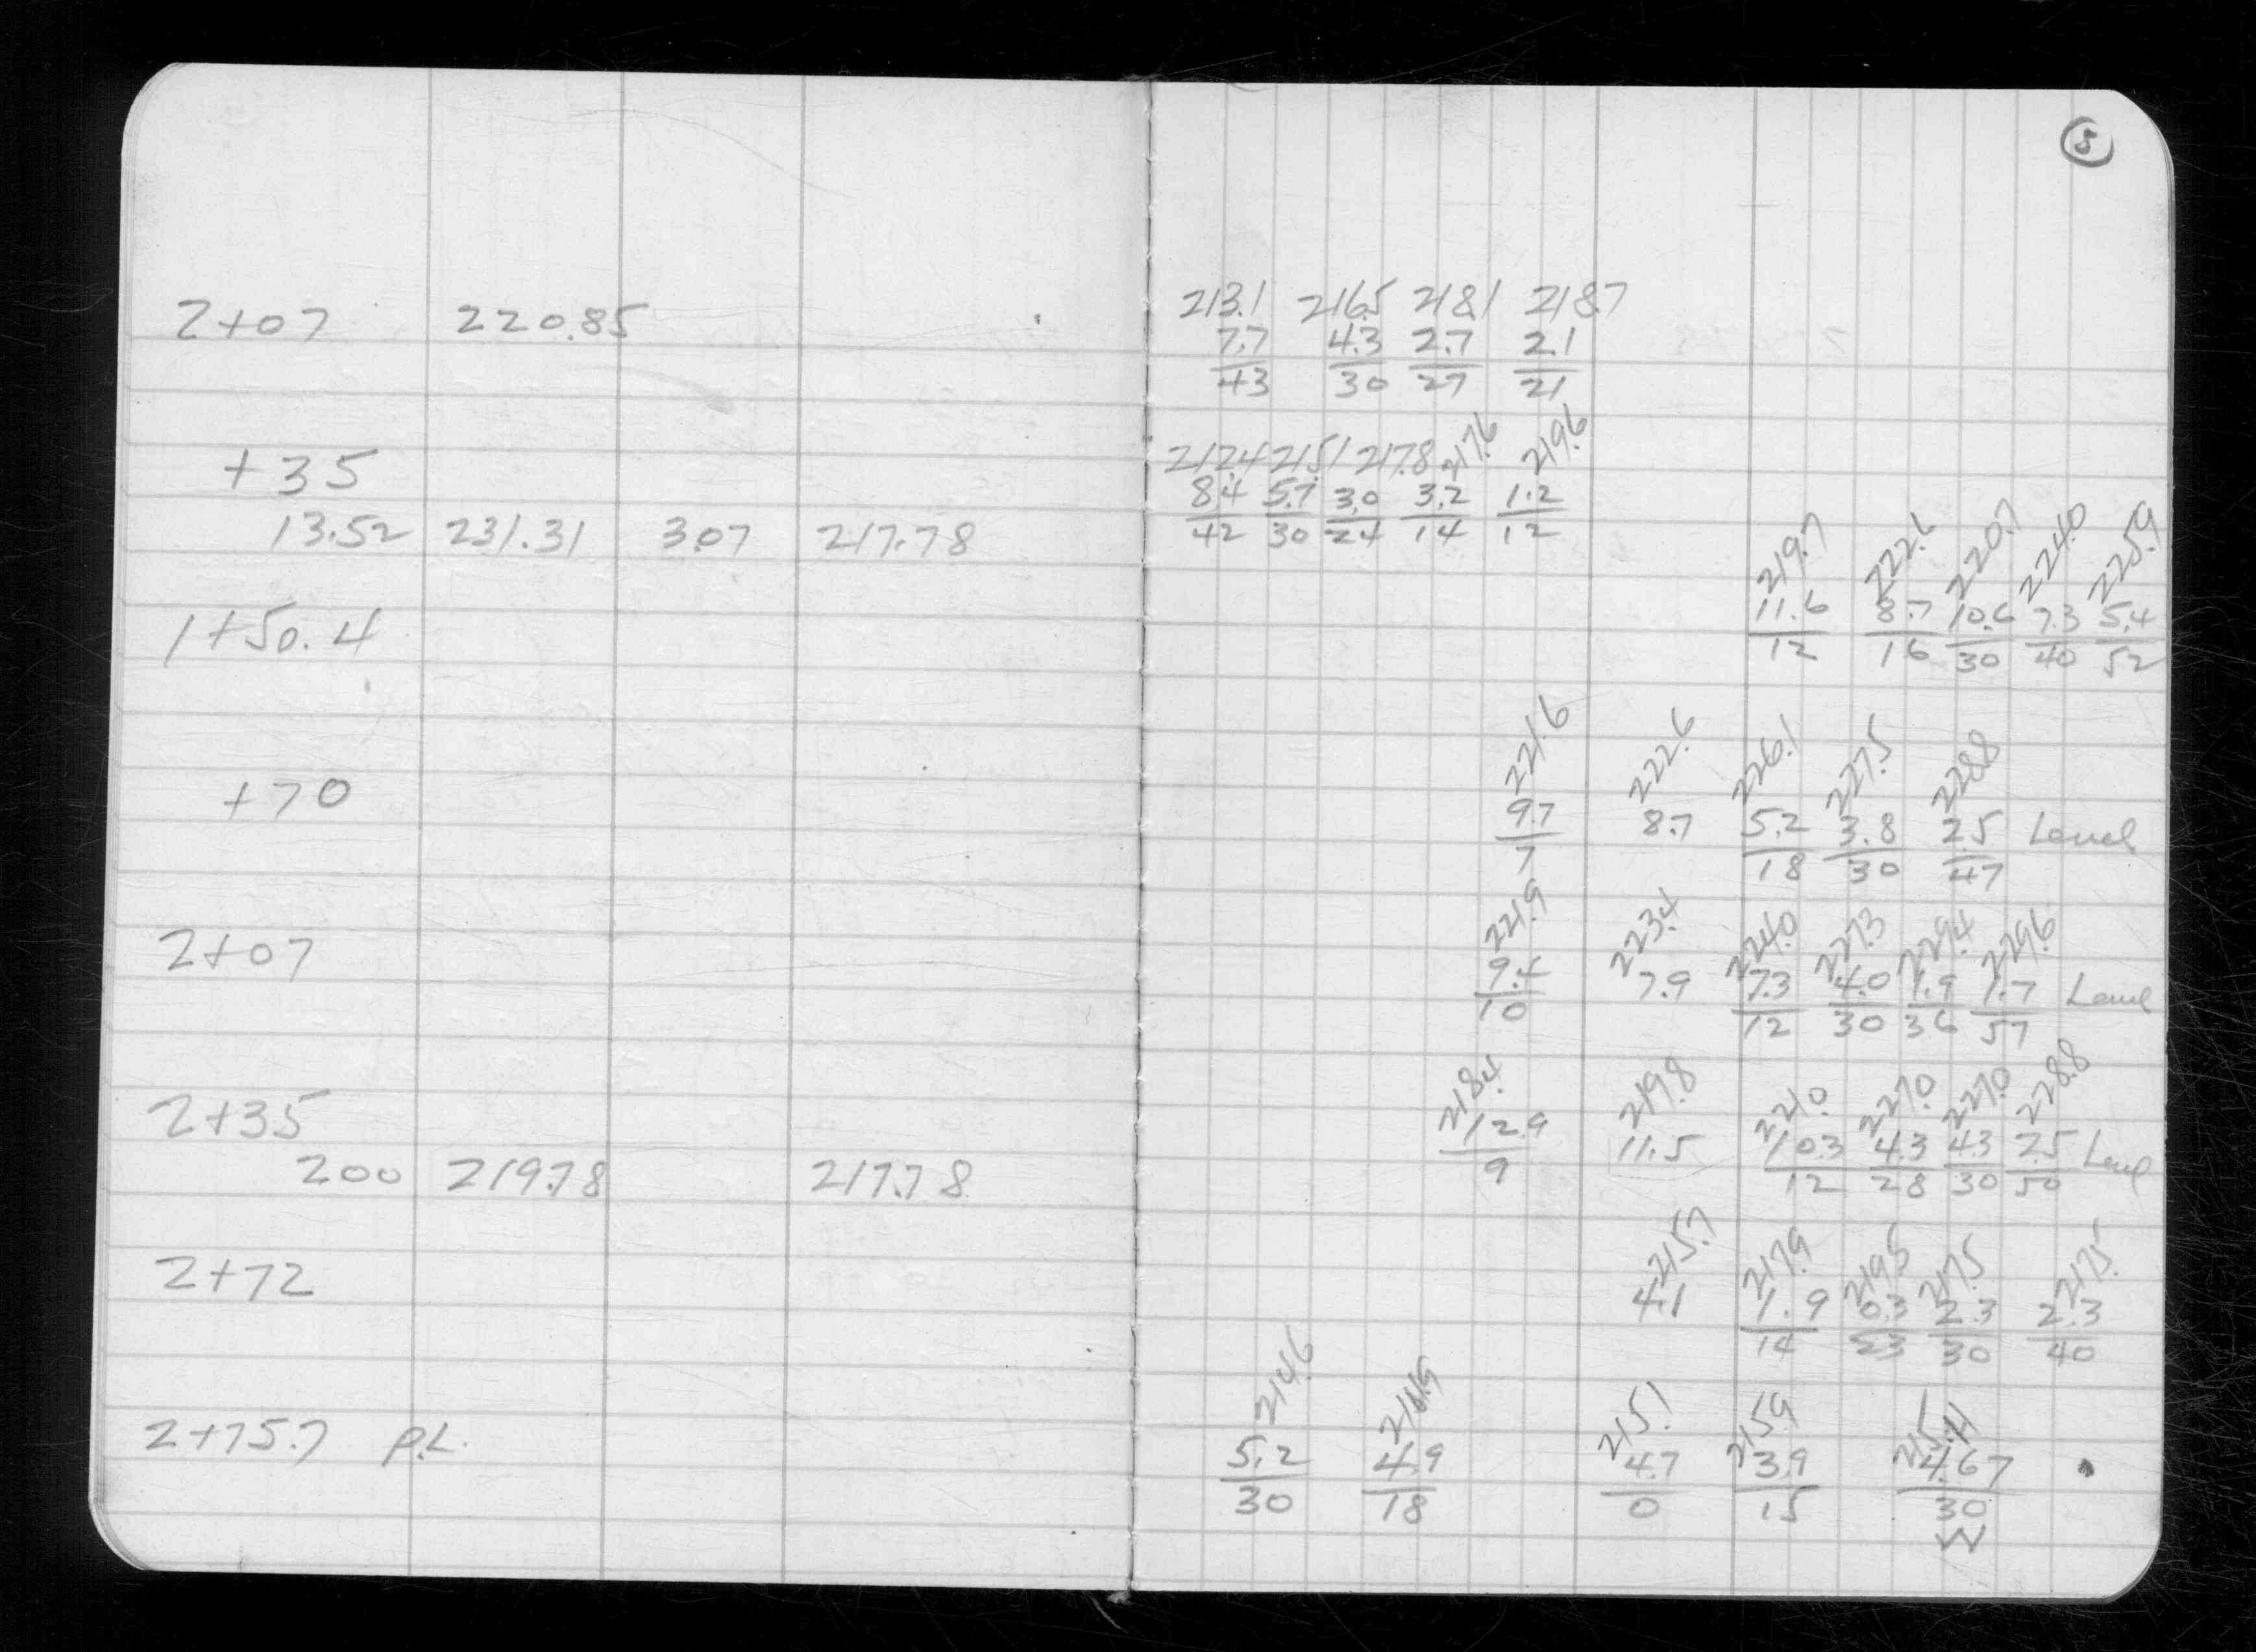 5
213.1 216.5 218.1 218.7
2+07 220.85 7.7 4.3 2.7 2.1
43 30 27 21
212.4 215.1 217.8 217.6 219.6
+35 8.4 5.7 3.0 3.2 1.2
13.52 231.31 3.07 217.78 42 30 24 14 12
219.7 222.6 220.7 224.0 225.9
1+50.4 11.6 8.7 10.6 7.3 5.4
12 16 30 40 52
221.6 222.6 226.1 227.5 228.8
+70 9.7 8.7 5.2 3.8 2.5 Level
7 18 30 47
221.9 223.4 224.0 227.3 229.4 229.6
2+07 9.4 7.9 7.3 4.0 1.9 1.7 Level
10 12 30 36 57
218.4 219.8 221.0 227.0 227.0 228.8
2+35 12.9 11.5 10.3 4.3 4.3 2.5 Level
200 219.78 217.78 9 12 28 30 50
215.7 217.9 219.5 217.5 217.5
2+72 4.1 1.9 0.3 2.3 2.3
14 23 30 40
214.6 215.1 215.9 215.11
2+75.7 P.L. 5.2 4.9 4.7 3.9 4.67
30 18 0 15 30